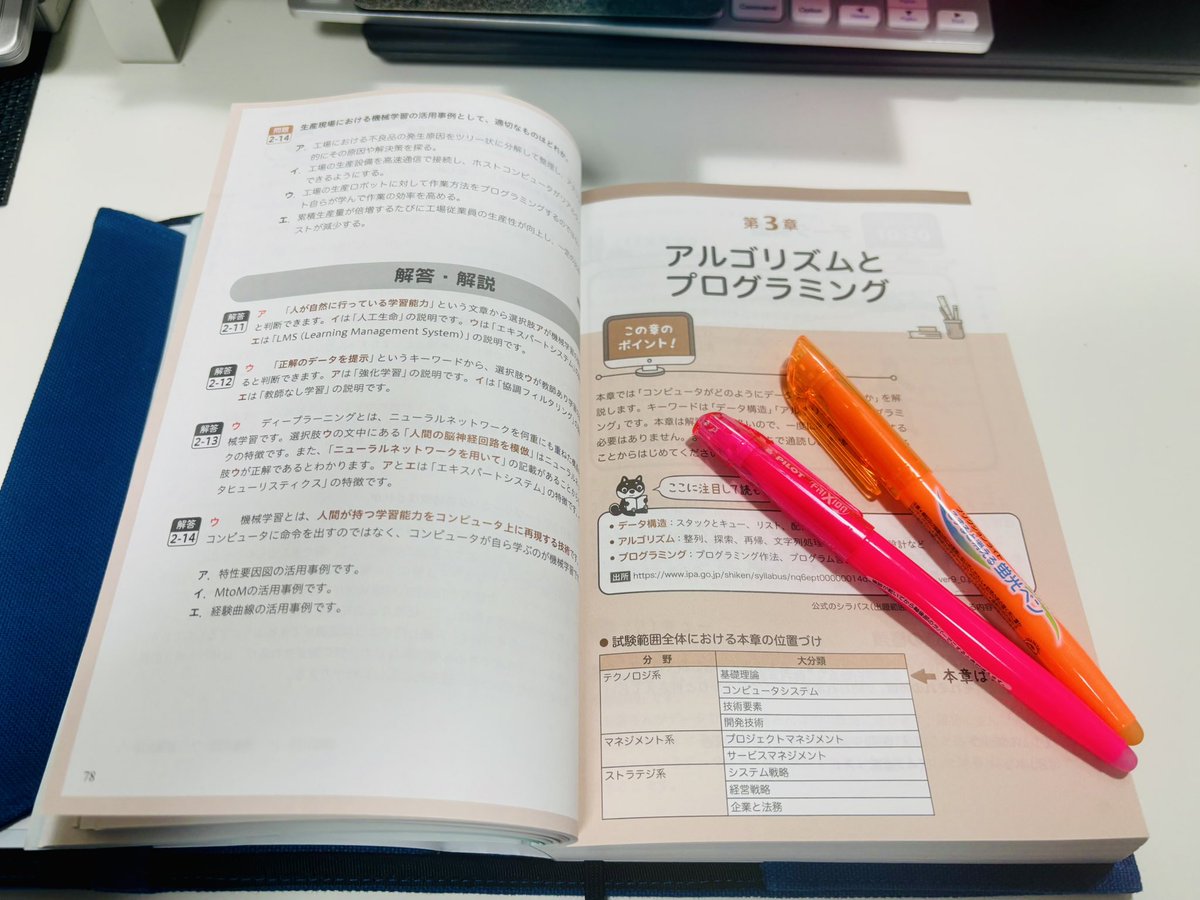 Command
Option
問題
2-14
生産現場における機械学習の活用事例として、適切なものはどれか。
ア. 工場における不良品の発生原因をツリー状に分解して整理し、
的にその原因や解決策を探る。
イ. 工場の生産設備を高速通信で接続し、ホストコンピュータが
できるようにする。
ウ. 工場の生産ロボットに対して作業方法をプログラミングするのではなく、
ト自らが学んで作業の効率を高める。
エ. 累積生産量が倍増するたびに工場従業員の生産性が向上し、
ストが減少する。
解答・解説
解答
2-11
ア 「人が自然に行っている学習能力」という文章から選択肢アが機械学習
と判断できます。イは「人工生命」の説明です。ウは「エキスパートシステム」
エは「LMS（Learning Management System）」の説明です。
解答
2-12
ウ 「正解のデータを提示」というキーワードから、選択肢ウが教師あり学習
ると判断できます。アは「強化学習」の説明です。イは「協調フィルタリング」
エは「教師なし学習」の説明です。
解答
2-13
ウ ディープラーニングとは、ニューラルネットワークを何重にも重ねた
械学習です。選択肢ウの文中にある「人間の脳神経回路を模倣」はニューラル
クの特徴です。また、「ニューラルネットワークを用いて」の記載があることから
肢ウが正解であるとわかります。アとエは「エキスパートシステム」の特徴です。
タヒューリスティクス」の特徴です。
解答
2-14
ウ 機械学習とは、人間が持つ学習能力をコンピュータ上に再現する技術です。
コンピュータに命令を出すのではなく、コンピュータが自ら学ぶのが機械学習で
ア. 特性要因図の活用事例です。
イ. MtoMの活用事例です。
エ. 経験曲線の活用事例です。
78
第3章
アルゴリズムと
プログラミング
この章の
ポイント！
本章では「コンピュータがどのようにデー か」を解
説します。キーワードは「データ構造」「アル
ング」です。本章は解 いので、一度
必要はありません。 で通読し
ことからはじめてくださ
ここに注目して読
● データ構造：スタックとキュー、リスト、配
● アルゴリズム：整列、探索、再帰、文字列処理 設計など
● プログラミング：プログラミング作法、プログラム言
出所 https://www.ipa.go.jp/shiken/syllabus/nq6ept00000014
公式のシラバス（出題範囲 る内容
● 試験範囲全体における本章の位置づけ
分 野 大分類
テクノロジ系 基礎理論
コンピュータシステム
技術要素
開発技術
マネジメント系 プロジェクトマネジメント
サービスマネジメント
ストラテジ系 システム戦略
経営戦略
企業と法務
本章は
PILOT FRIXION
蛍光ペン